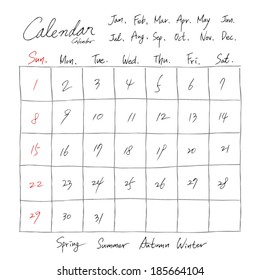 Calendar Jan. Feb. Mar. Apr. May Jun.
Calendar Jul. Aug. Sep. Oct. Nov. Dec.
Sun. Mon. Tue. Wed. Thu. Fri. Sat.
1 2 3 4 5 6 7
8 9 10 11 12 13 14
15 16 17 18 19 20 21
22 23 24 25 26 27 28
29 30 31
Spring Summer Autumn Winter
shutterstock.com · 185664104